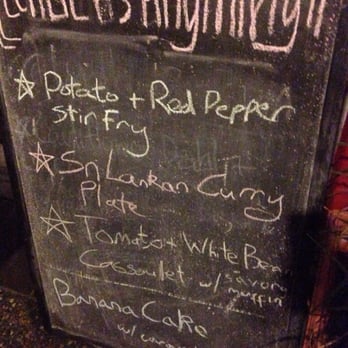 Potato + Red Pepper
Stir Fry
Sri Lankan Curry
Plate
Tomato + White Bean
Cassoulet w/ savory
muffin
Banana Cake
w/